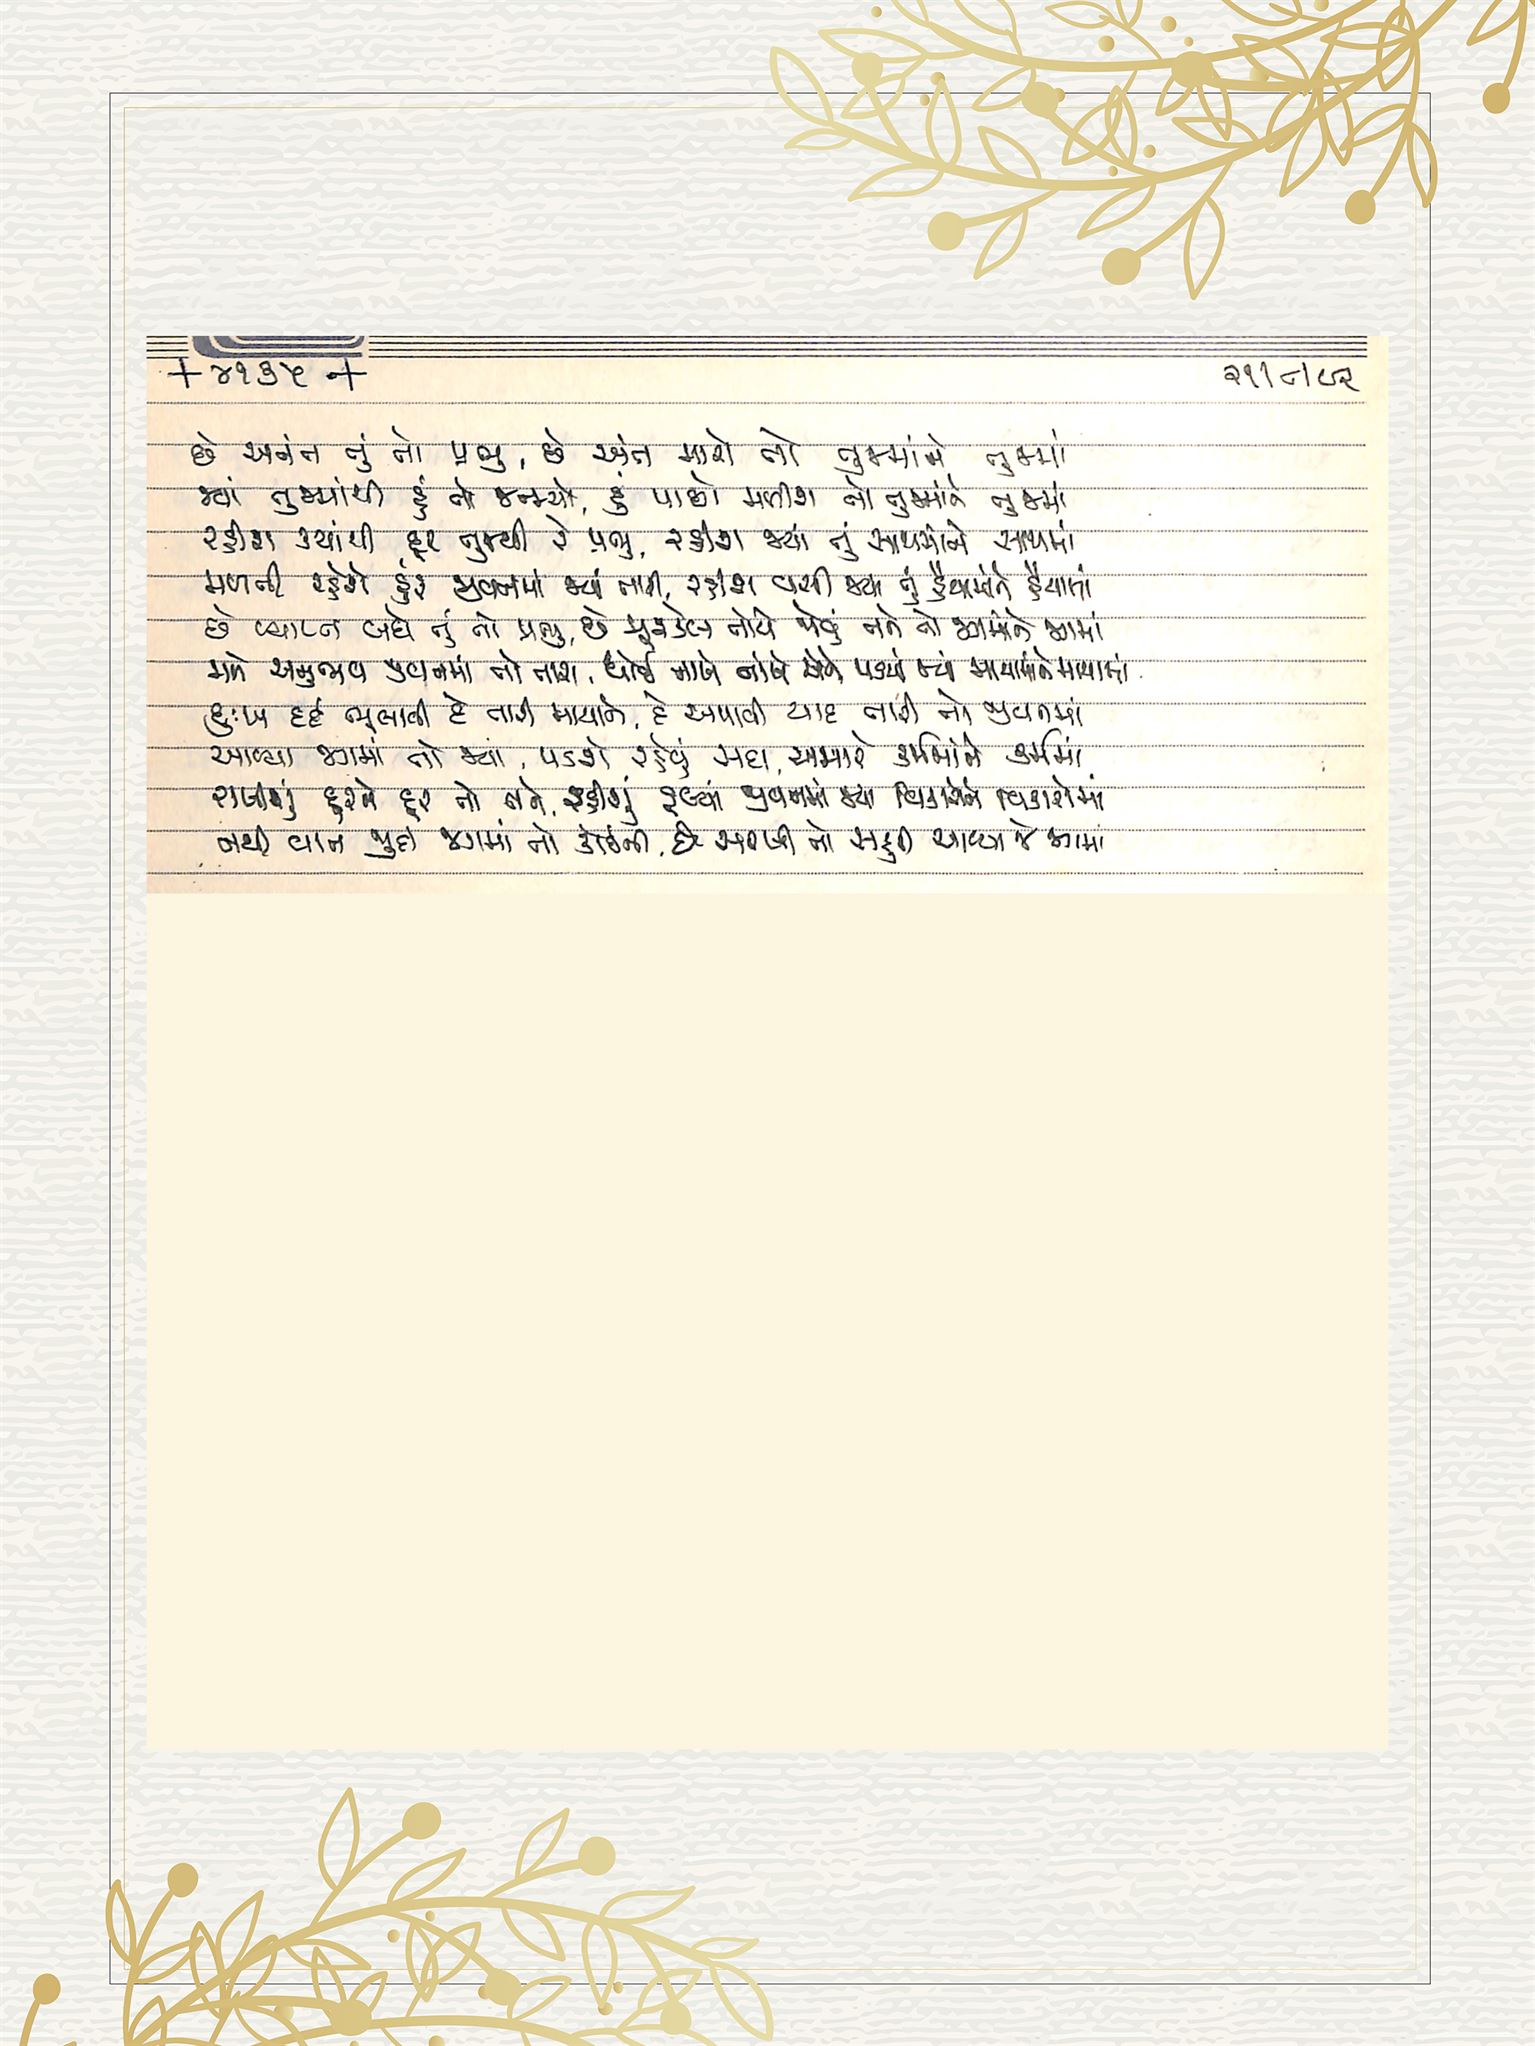 + ૪૧૩૫ +
૨૧/૮/૯૨
છે અનંત તું તો પ્રભુ, છે અંત મારો તો તુજમાંને તુજમાં
જ્યાં તુજમાંથી હું તો જન્મ્યો, હું પાછો મળીશ તો તુજમાંને તુજમાં
રહીશ ક્યાંથી દૂર તુજથી રે પ્રભુ, રહીશ જ્યાં તું સાથમાંને સાથમાં
મળતી રહેશે હુંફ જીવનમાં જ્યાં તારી, રહીશ વસી જ્યાં તું હૈયામાંને હૈયામાં
છે વ્યાપ્ત બધે તું તો પ્રભુ, છે મુશ્કેલ તોયે જોવું તને તો જગમાંને જગમાં
મળે અનુભવ જીવનમાં તો તારા, ધોઈ નાખે પડયાં જ્યાં માયામાંને માયામાં
દુઃખ દર્દ ભુલાવી દે તારી માયાને, દે અપાવી યાદ તારી તો જીવનમાં
આવ્યા જગમાં તો જ્યાં, પડશે રહેવું સદા, અમારે કર્મમાંને કર્મમાં
રાખીશું દૂરને દૂર તો તને, રહીશું ડૂબ્યાં જીવનમાં જ્યાં વિકારોને વિકારોમાં
નથી વાત જુદી જગમાં તો કોઈની, છે સરખી તો સહુની આવ્યા જે જગમાં